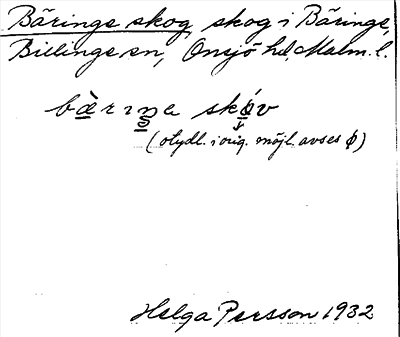 Bäringe skog, skog i Bäringe,
Billinge sn, Onsjö hd, Malm. l.
bæ̀rıŋe skǿv
(otydl. i orig. möjl. avses ϕ)
Helga Persson 1932